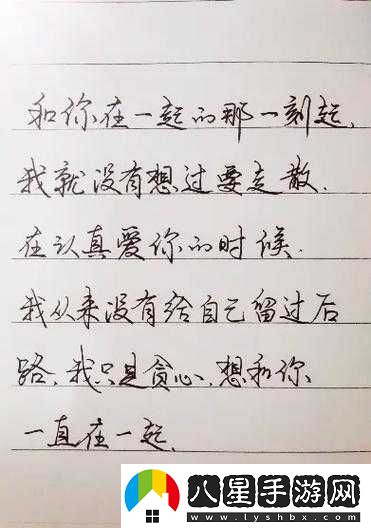 和你在一起的那一刻起,
我就没有想过要走散.
在认真爱你的时候.
我从来没有给自己留过后
路,我只是贪心,想和你
一直在一起,
八星手游网
www.lyshbx.com